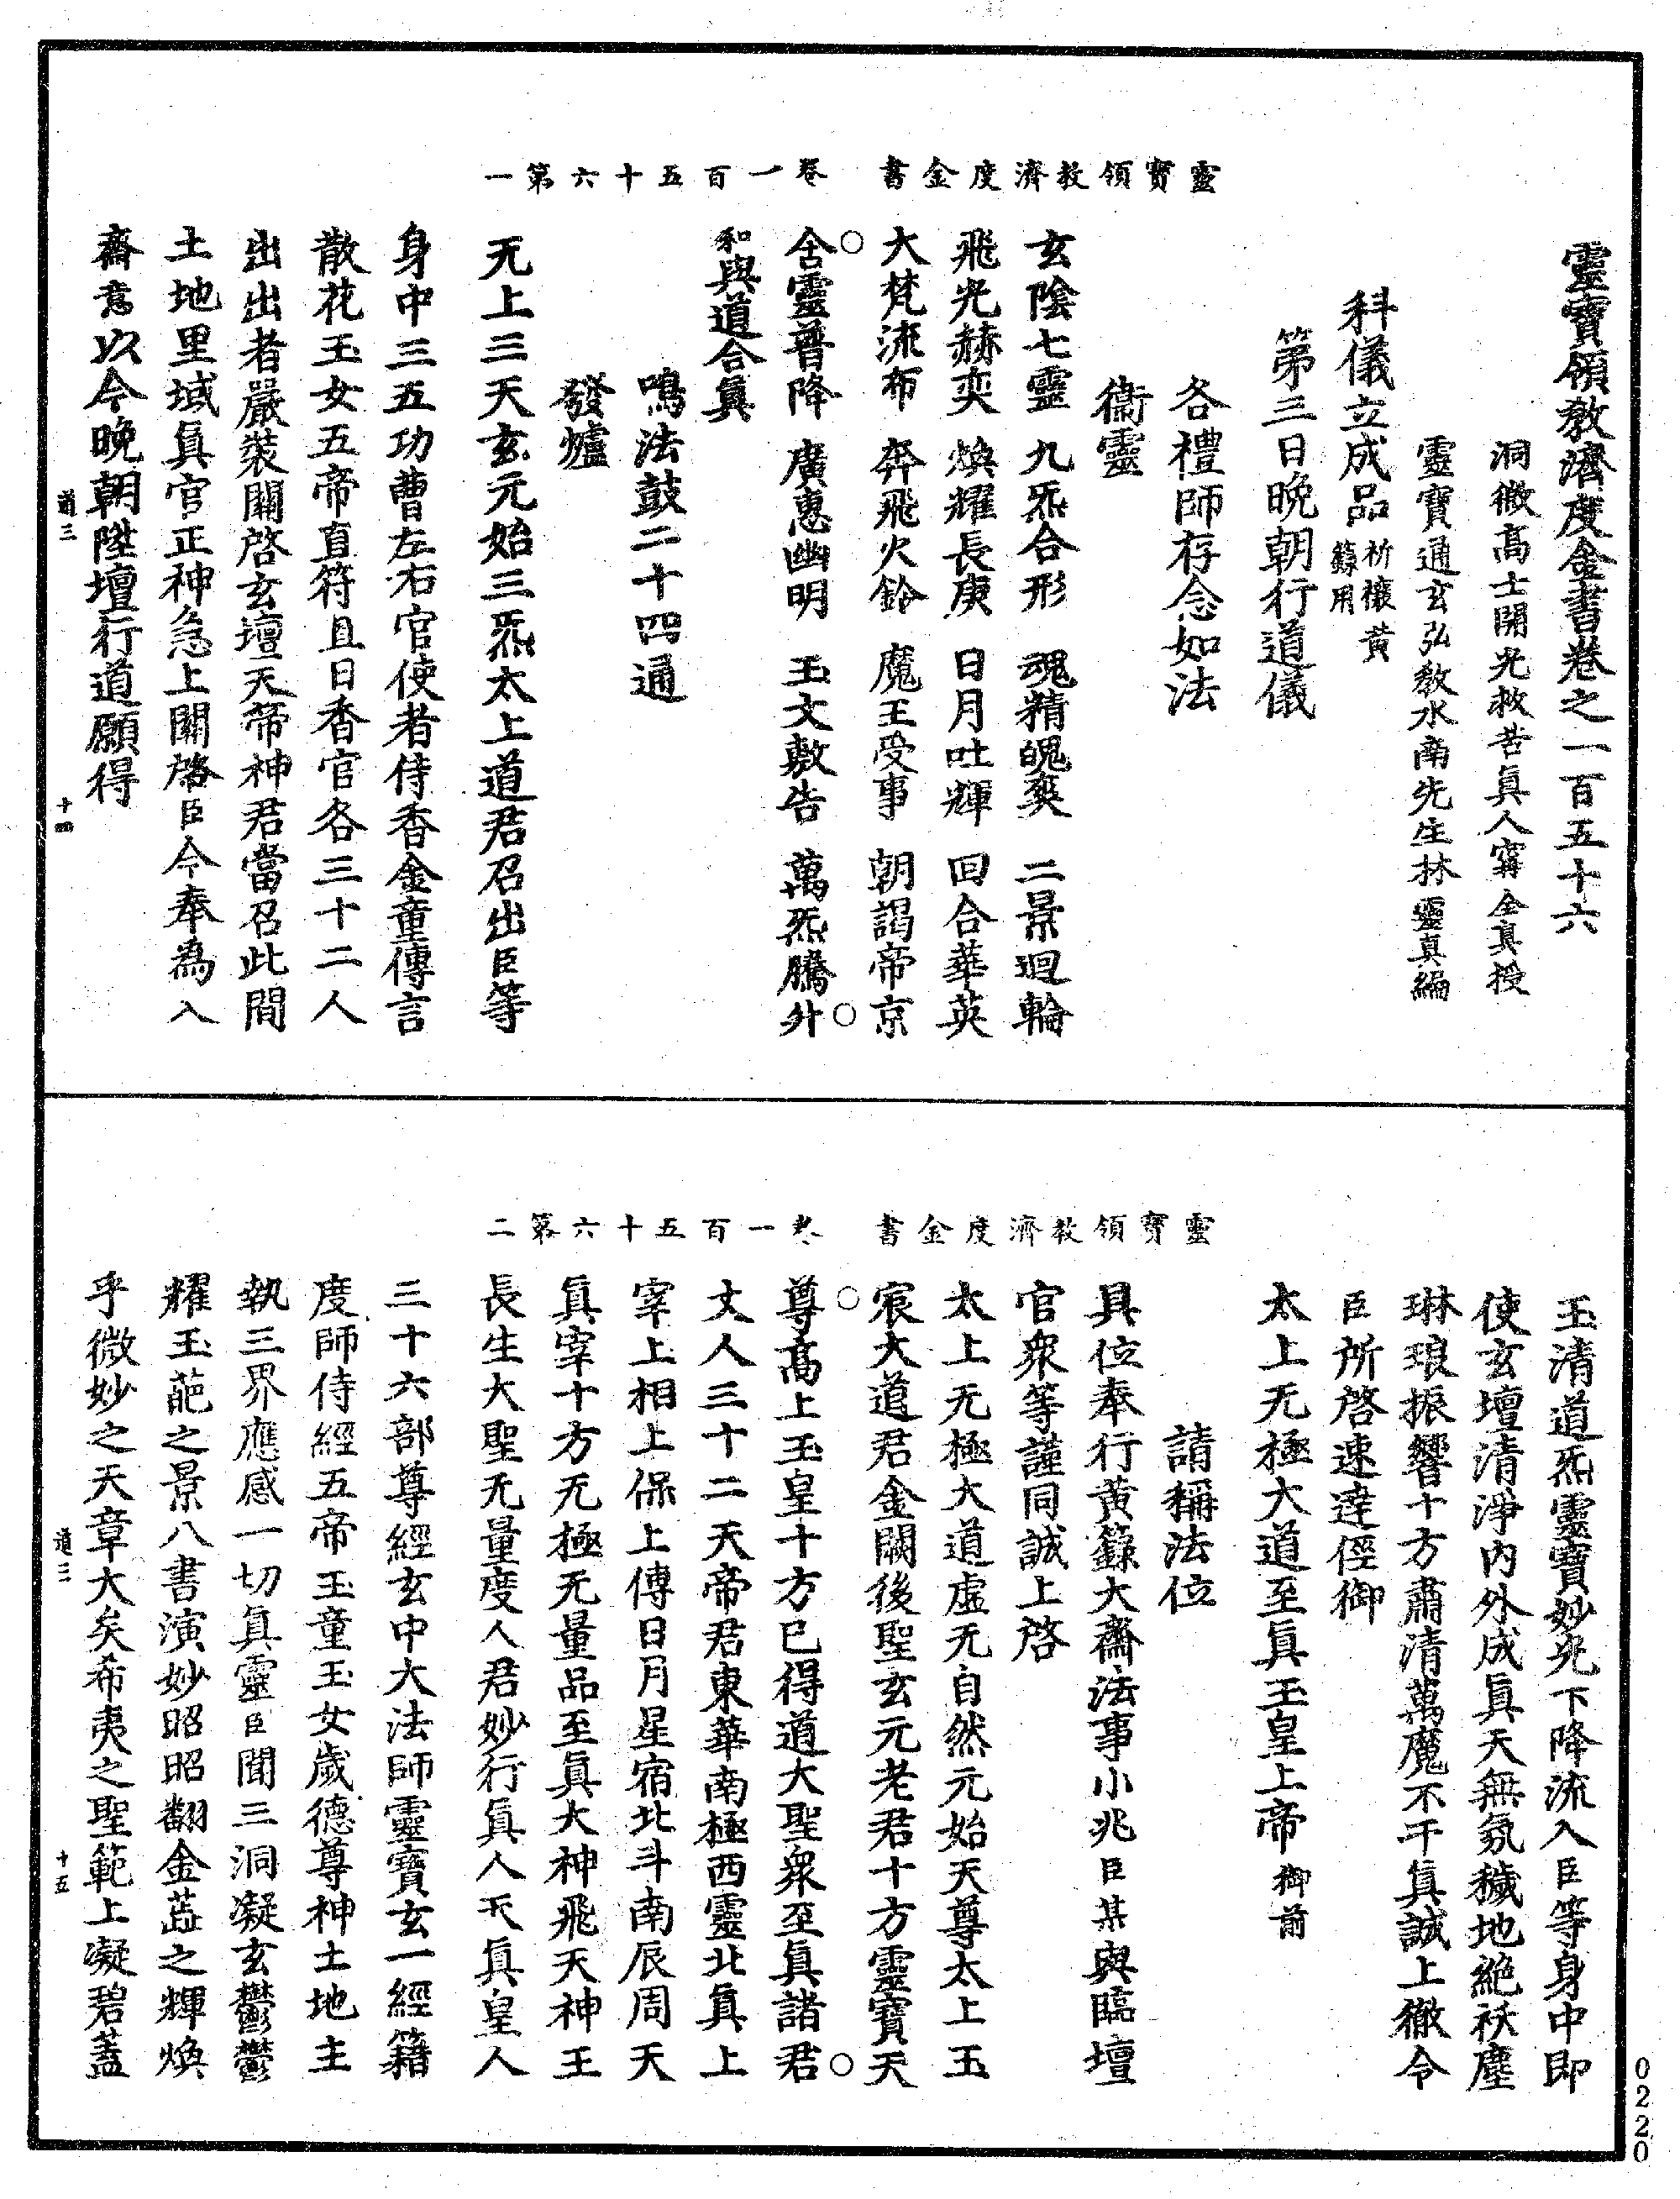 靈寶領教濟度金書卷之一百五十六
洞微高士開光救苦眞人寗全真授
靈寶通玄弘教水南先生林靈真編
科儀立成品祈禳黄籙用
第三日晚朝行道儀
各禮師存念如法
衞靈
玄陰七靈　九炁合形　魂精魄爽　二景迴輪
飛光赫奕　煥耀長庚　日月吐輝　回合華英
大梵流布　奔飛火鈴　魔王受事　朝謁帝京
含靈普降　廣惠幽明　玉文敷告　萬炁騰升
和與道合眞
鳴法鼓二十四通
發爐
无上三天玄元始三炁太上道君召出臣等
身中三五功曹左右官使者侍香金童傳言
散花玉女五帝直符直日香官各三十二人
出出者嚴裝關啓玄壇天帝神君當召此間
土地里域眞官正神急上關啓臣今奉爲入
齋意以今晚朝陞壇行道願得
靈寶領教濟度金書　卷一百五十六第一
道三　十四
玉清道炁靈寶妙光下降流入臣等身中即
使玄壇清淨内外成眞天無氛穢地絶袄塵
琳琅振響十方肅清萬魔不干眞誠上徹令
臣所啓速達徑御
太上无極大道至眞玉皇上帝御前
請稱法位
具位奉行黄籙大齋法事小兆臣某與臨壇
官衆等謹同誠上啓
太上无極大道虚无自然元始天尊太上玉
宸大道君金闕後聖玄元老君十方靈寶天
尊高上玉皇十方已得道大聖衆至眞諸君
丈人三十二天帝君東華南極西靈北眞上
宰上相上保上傅日月星宿北斗南辰周天
眞宰十方无極无量品至眞大神飛天神王
長生大聖无量度人君妙行眞人天眞皇人
三十六部尊經玄中大法師靈寶玄一經籍
度師侍經五帝玉童玉女歲德尊神土地主
執三界應感一切眞靈臣聞三洞凝玄鬱鬱
耀玉葩之景八書演妙昭昭翻金蘂之輝煥
乎微妙之天章大矣希夷之聖範上凝碧蓋
靈寶領教濟度金書　卷一百五十六第二
道三　十五
0220